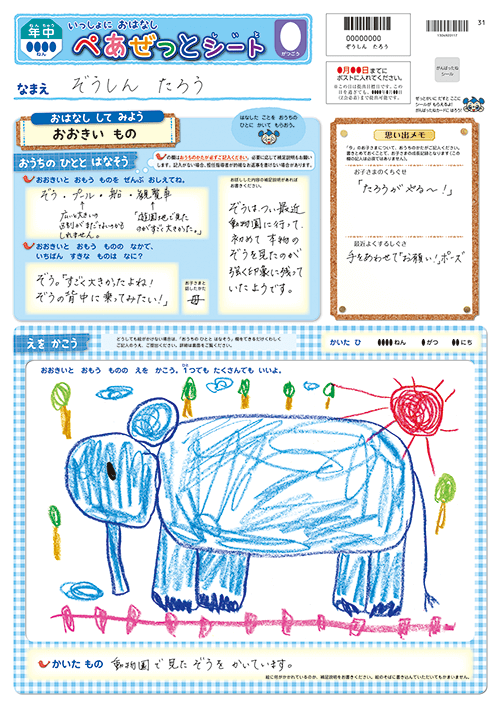 年中
ねん ちゅう
いっしょに おはなし
ぺあぜっとシート
がつごう
00000000
ぞうしん たろう
31
●月●●日までに
ポストに入れてください。
がんばったね
シール
なまえ ぞうしん たろう
おはなし して みよう
おおきい もの
はなした ことを おうちの
ひとに かいて もらおう。
思い出メモ
おうちの ひとと はなそう
おおきいと おもう ものを ぜんぶ おしえてね。
ぞう・プール・船・観覧車
「遊園地で見た
のがすごく大きかった。」
おおきいと おもう ものの なかで、
いちばん すきな ものは なに?
ぞう。「すごく大きかったよね!
ぞうの背中に乗ってみたい!」
お子さまと
話したかた
母
話しした内容の補足説明があれば
お書きください。
ぞうは、つい最近
動物園に行って、
初めて本物の
ぞうを見たのが
強く印象に残って
いたようです。
お子さまのくちぐせ
「たろうがやる〜!」
最近よくするしぐさ
手をあわせて"お願い!"ポーズ
えを かこう
かいた ひ ●●●●ねん ●がつ ●●にち
おおきいと おもう ものの えを かこう。1つでも たくさんでも いいよ。
かいた もの 動物園で見たぞうをかいています。
絵に何がかかれているのか、補足説明をお書きください。絵のそばに書き込んでいただいてもかまいません。